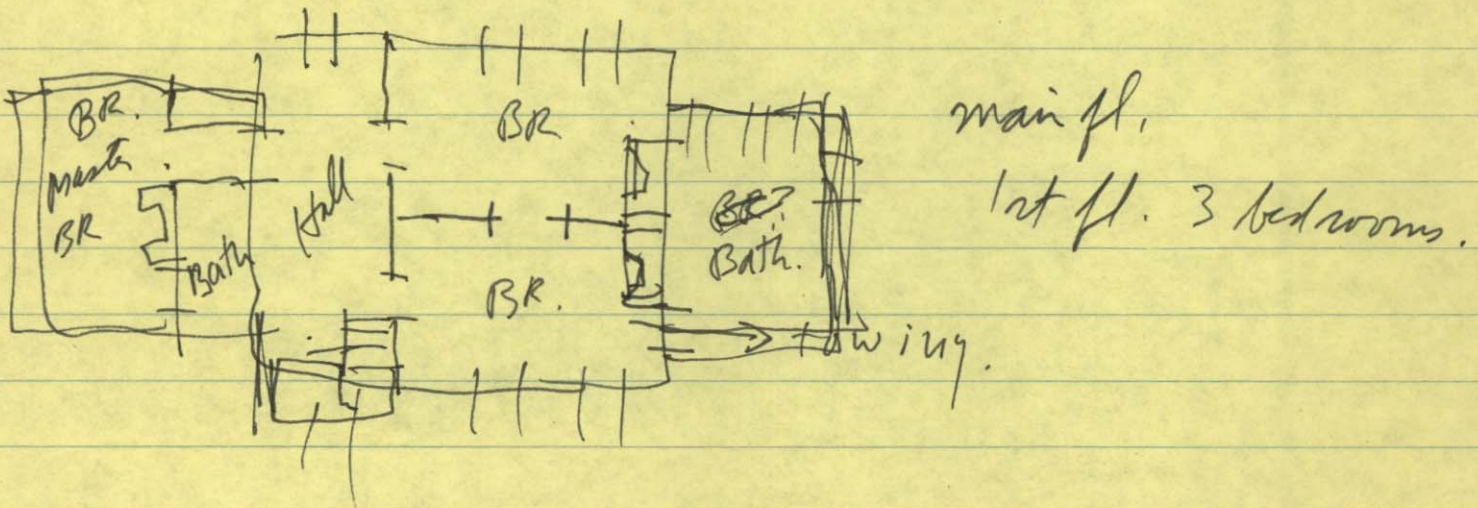 BR.
Master
BR
Bath
Hall
BR
BR.
Bath.
wing.
main fl.
1st fl. 3 bedrooms.